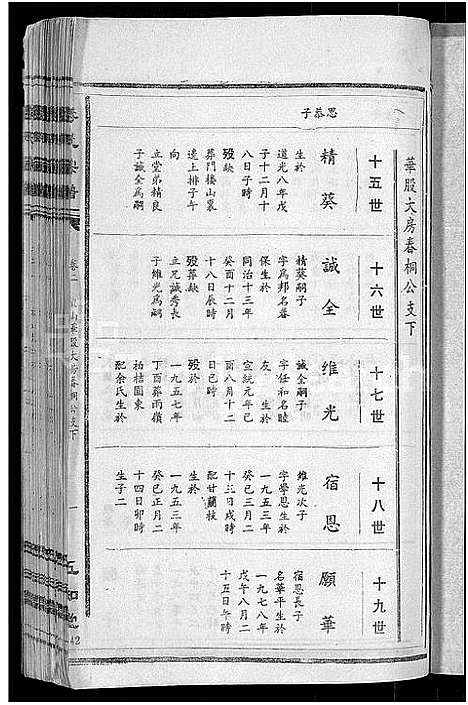 華股大房春桐公支下
十五世
思恭子
精葵
生於
道光八年戊
子十二月十
八日子時
歿缺
葬門樓山裏
邊上排子午
向
立堂弟精良
子誠全為嗣
十六世
誠全
精葵嗣子
字為邦名春
保生於
同治十三年
癸酉十二月
十八日辰時
歿葬缺
立兄誠秀長
子維光為嗣
十七世
維光
誠全嗣子
字任和名睦
友 生於
宣統元年己
酉八月十二
日巳時
歿於
一九五七年
丁酉葬雨嶺
柏桔園東
配余氏生於
十八世
宿恩
維光次子
字學恩生於
一九五三年
癸巳三月二
十三日戌時
配甘蘭枝
生於
一九五三年
癸巳正月二
十四日卯時
生子二
十九世
願華
宿恩長子
名華平生於
一九七八年
戊午八月二
十五日午時
卷二
山華股大房春桐公支下
一
42